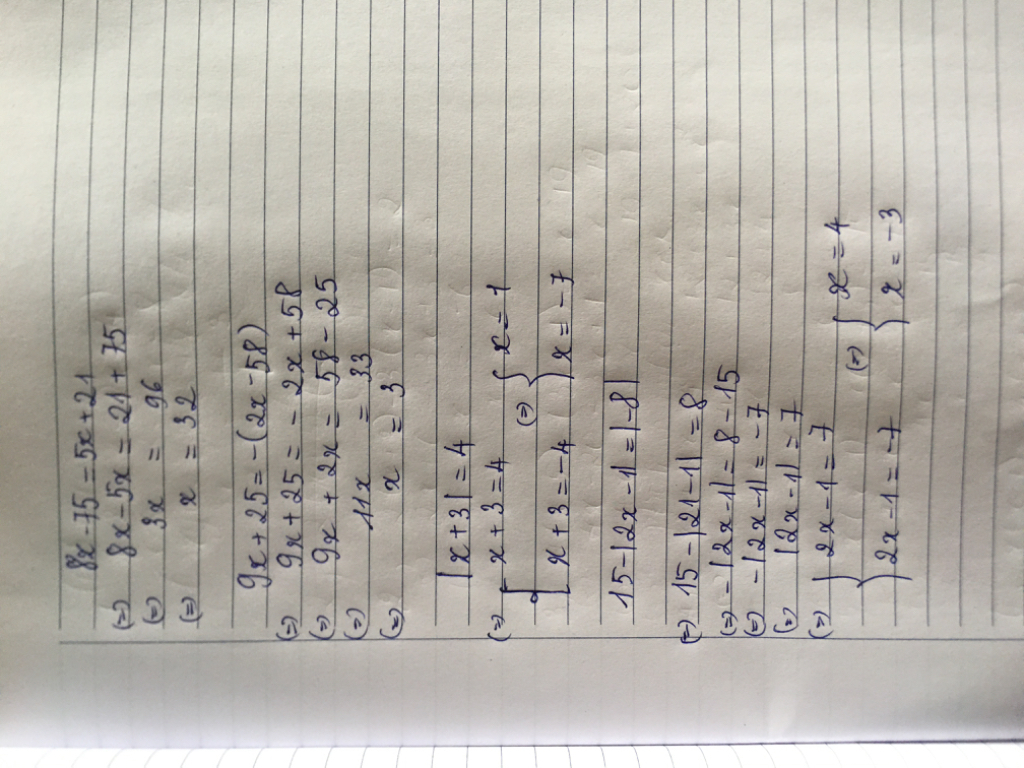 8x - 75 = 5x + 21
(=) 8x - 5x = 21 + 75
(=) 3x = 96
(=) x = 32
9x + 25 = -(2x - 58)
(=) 9x + 25 = - 2x + 58
(=) 9x + 2x = 58 - 25
(=) 11x = 33
(=) x = 3
|x + 3| = 4
(=) [ x + 3 = 4 (=) { x = 1
[ x + 3 = -4 { x = -7
15 - |2x - 1| = |-8|
(=) 15 - |21 - 1| = 8
(=) - |2x - 1| = 8 - 15
(=) - |2x - 1| = -7
(=) |2x - 1| = 7
(=) } 2x - 1 = 7 (=) { x = 4
} 2x - 1 = -7 { x = -3